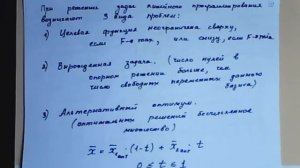 При решении задач линейного программирования
возникают 3 вида проблем:
1) Целевая функция неограничена сверху,
если F→max, или снизу, если F→min
2) Вырожденная задача. (число нулей в
опорном решении больше, чем
число свободных переменных данного
базиса)
3) Альтернативный оптимум.
(оптимальных решений бесчисленное
множество)
x̄ = x̄опт · (1-t) + x̄опт · t
0 ≤ t ≤ 1